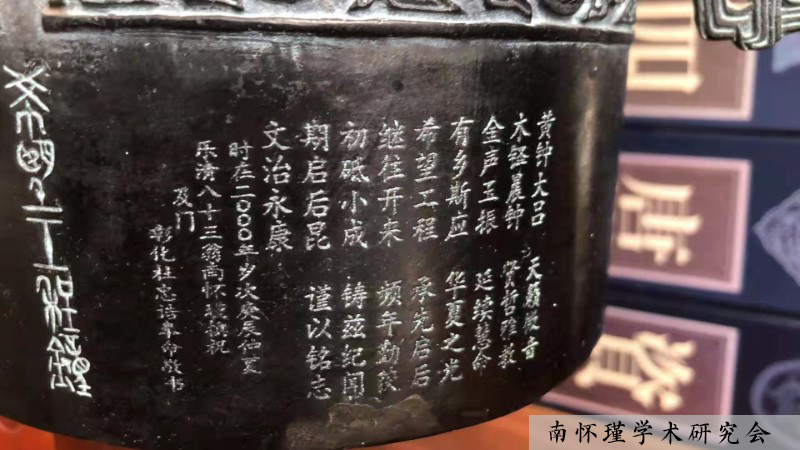 黄钟大吕 天籁
木铎晨钟 贤哲雅教
金声玉振 延续慧命
有多斯应 华夏之光
希望工程 承先启后
继往开来 频年勤
初砥小成 铸兹纪闻
期启后昆 谨以铭志
文治永康
时在二〇〇〇年岁次庚辰仲夏
乐清八十三翁南怀瑾
及门
彰化杜忠诰奉命敬书
唐
资
南怀瑾学术研究会